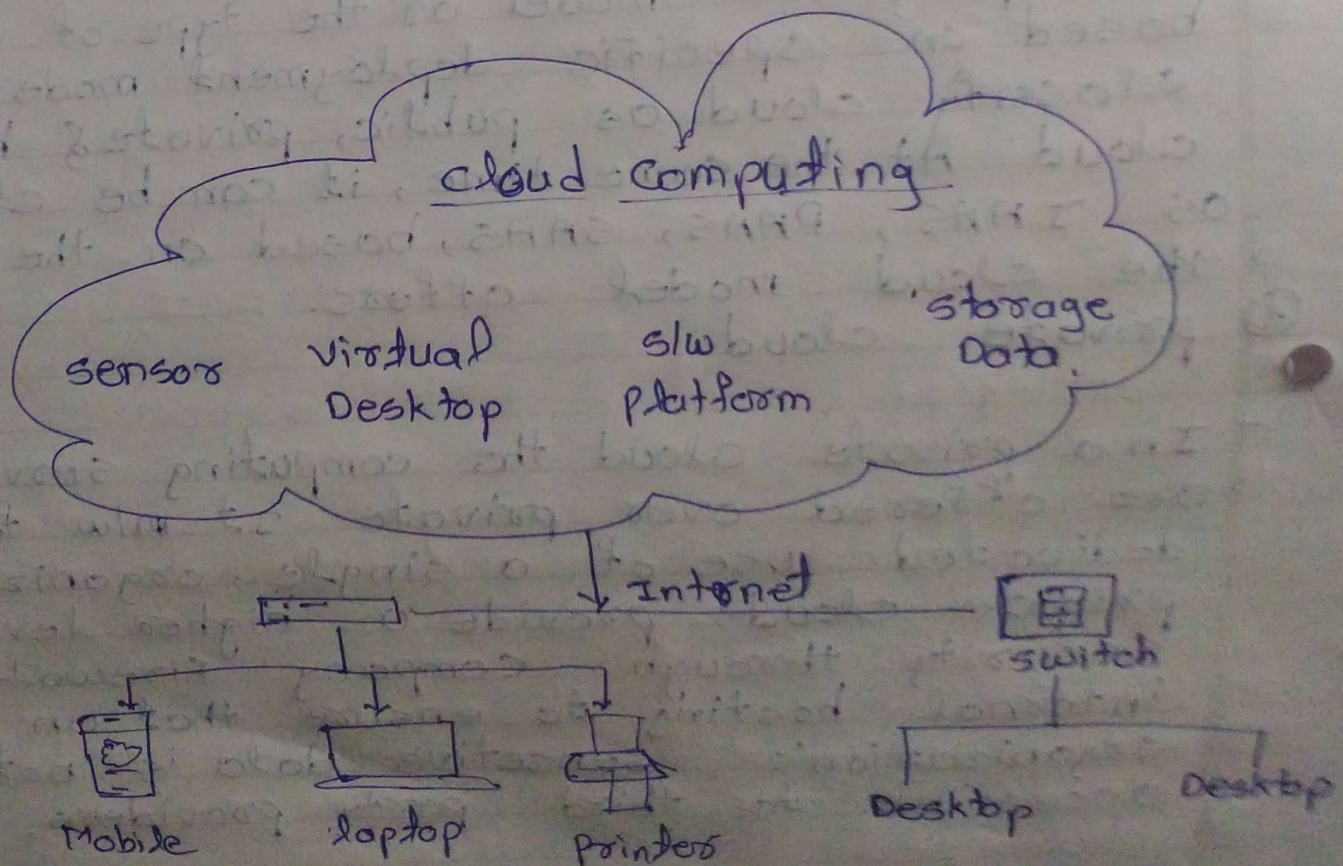 Cloud Computing
sensor
Virtual
Desktop
s/w
platform
storage
Data.
Internet
switch
Mobile
laptop
printer
Desktop
Desktop